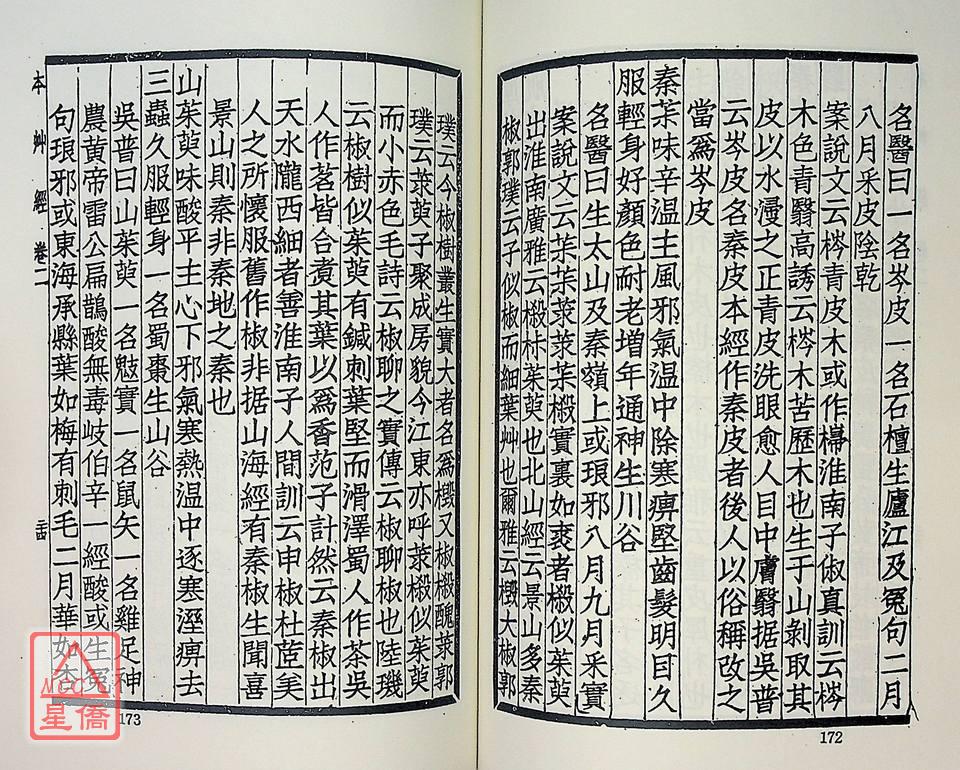 名醫曰一名岑皮一名石檀生廬江及冤句二月
八月采皮陰乾
案說文云梣青皮木或作㯤淮南子俶真訓云梣
木色青翳高誘云梣木苦歷木也生于山剝取其
皮以水浸之正青皮洗眼愈人目中膚翳据吳普
云岑皮名秦皮本經作秦皮者後人以俗稱改之
當爲岑皮
秦茮味辛溫主風邪氣溫中除寒痹堅齒髮明目久
服輕身好顏色耐老增年通神生川谷
名醫曰生太山及秦嶺上或琅邪八月九月采實
案說文云茮茮莍莍茮樧實裏如裘者樧似茱萸
出淮南廣雅云樧朻茱萸也北山經云景山多秦
椒郭璞云子似椒而細葉艸也爾雅云檓大椒郭
172
璞云今椒樹叢生實大者名爲檓又椒樧醜莍郭
璞云莍萸子聚成房貌今江東亦呼莍樧似茱萸
而小赤色毛詩云椒聊之實傳云椒聊椒也陸璣
云椒樹似茱萸有鍼刺葉堅而滑澤蜀人作茶吳
人作茗皆合煑其葉以爲香范子計然云秦椒出
天水隴西細者善淮南子人間訓云申椒杜茝美
人之所懷服舊作椒非据山海經有秦椒生聞喜
景山則秦非秦地之秦也
山茱萸味酸平主心下邪氣寒熱溫中逐寒溼痹去
三蟲久服輕身一名蜀棗生山谷
吳普曰山茱萸一名鬾實一名鼠矢一名雞足神
農黃帝雷公扁鵲酸無毒岐伯辛一經酸或生冤
句琅邪或東海承縣葉如梅有刺毛二月華如杏
本艸經 卷二
173
MCC
星僑